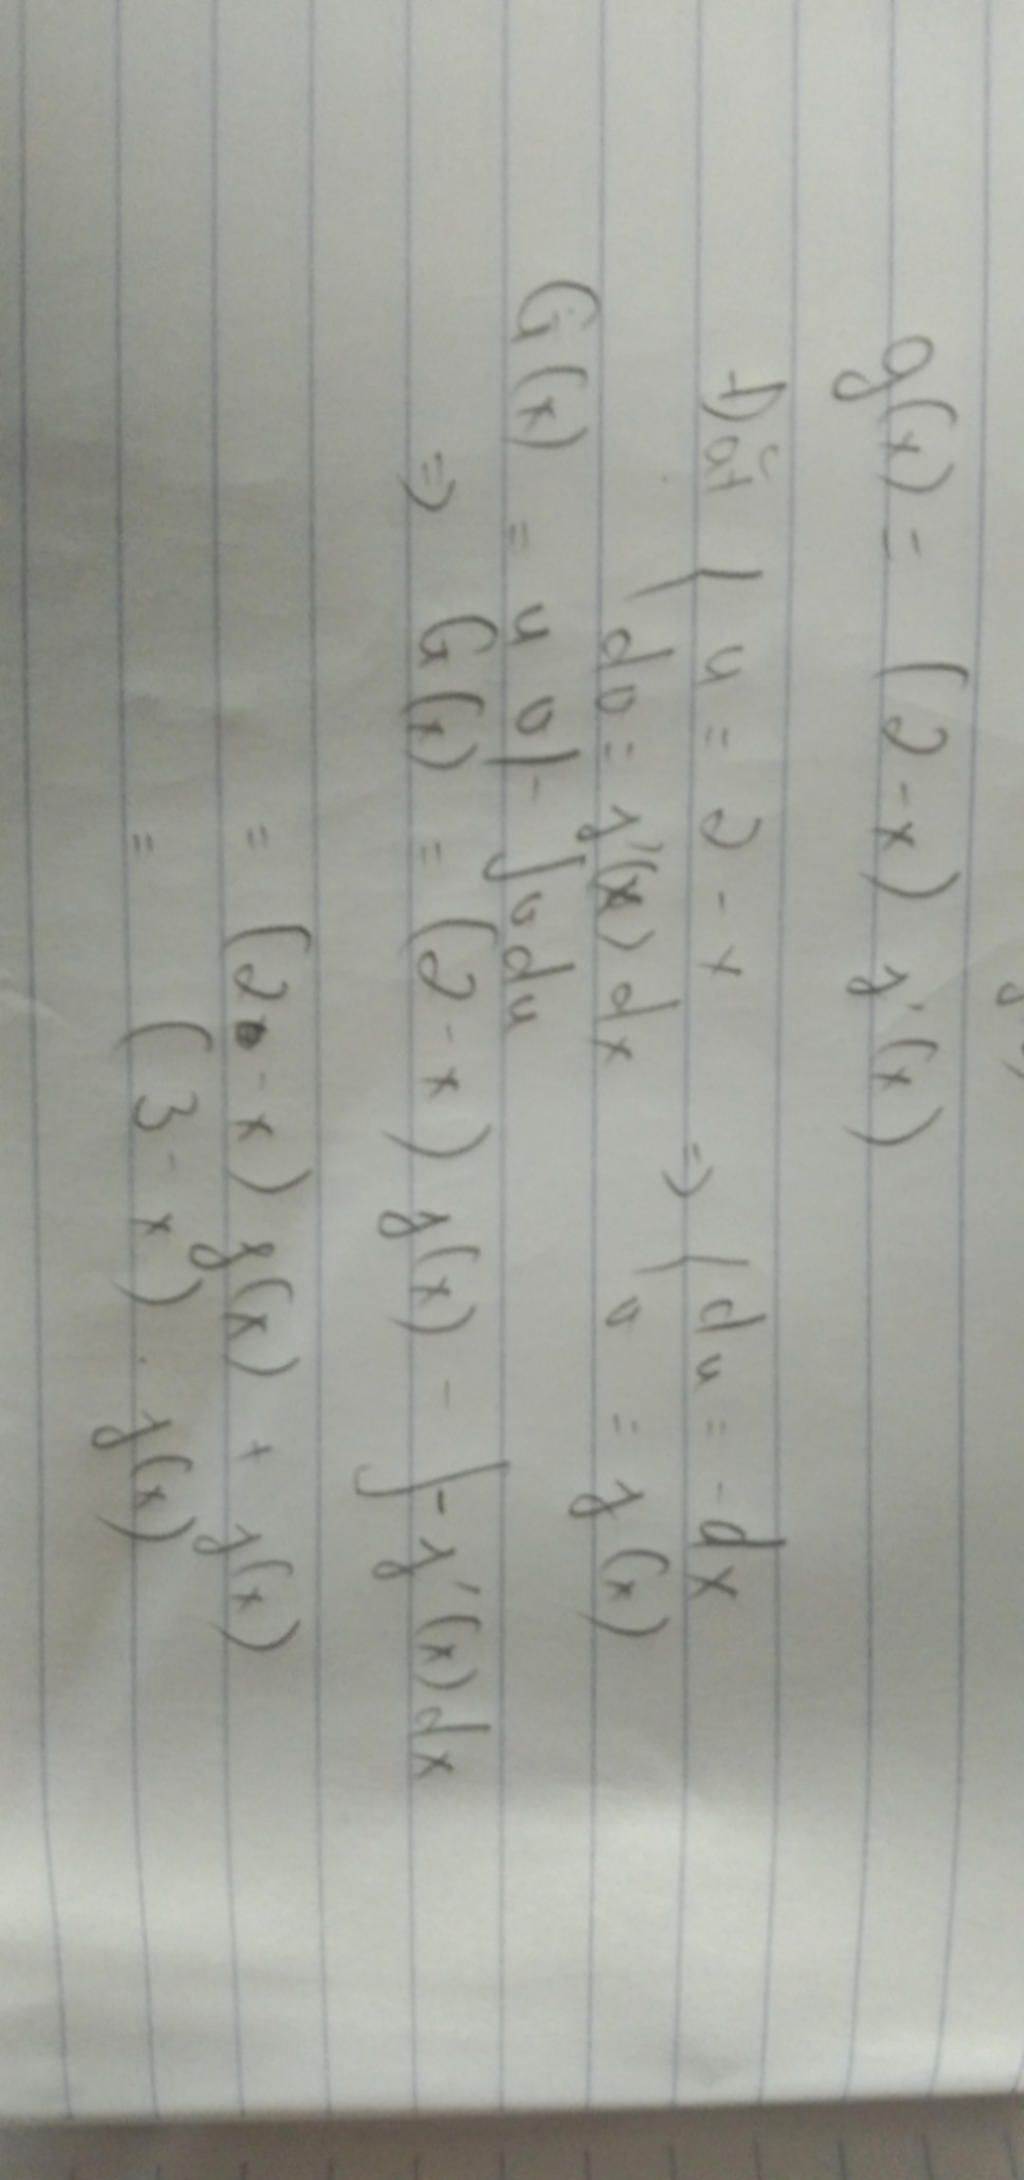 g(x) = (2-x) f'(x)
Đặt { u = 2 - x ⇒ { du = -dx
dv = f'(x) dx v = f(x)
G(x) = u v| - ∫vdu
⇒ G(x) = (2-x) f(x) - ∫-f'(x)dx
= (2-x) f(x) + f(x)
= (3-x) . f(x)